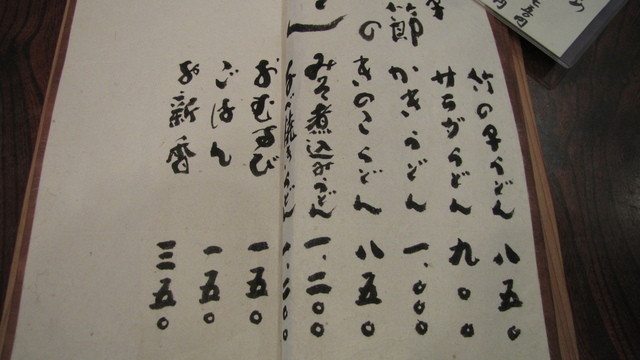 節の
竹の子うどん 八五〇
サラダうどん 九〇〇
かきうどん 一、〇〇〇
きのこうどん 八五〇
みそ煮込みうどん 一、二〇〇
うどん 一、二〇〇
おむすび 一五〇
ごはん 一五〇
お新香 三五〇